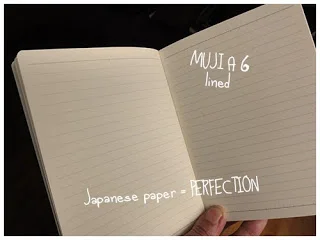 MUJI A6
lined
Japanese paper = PERFECTION